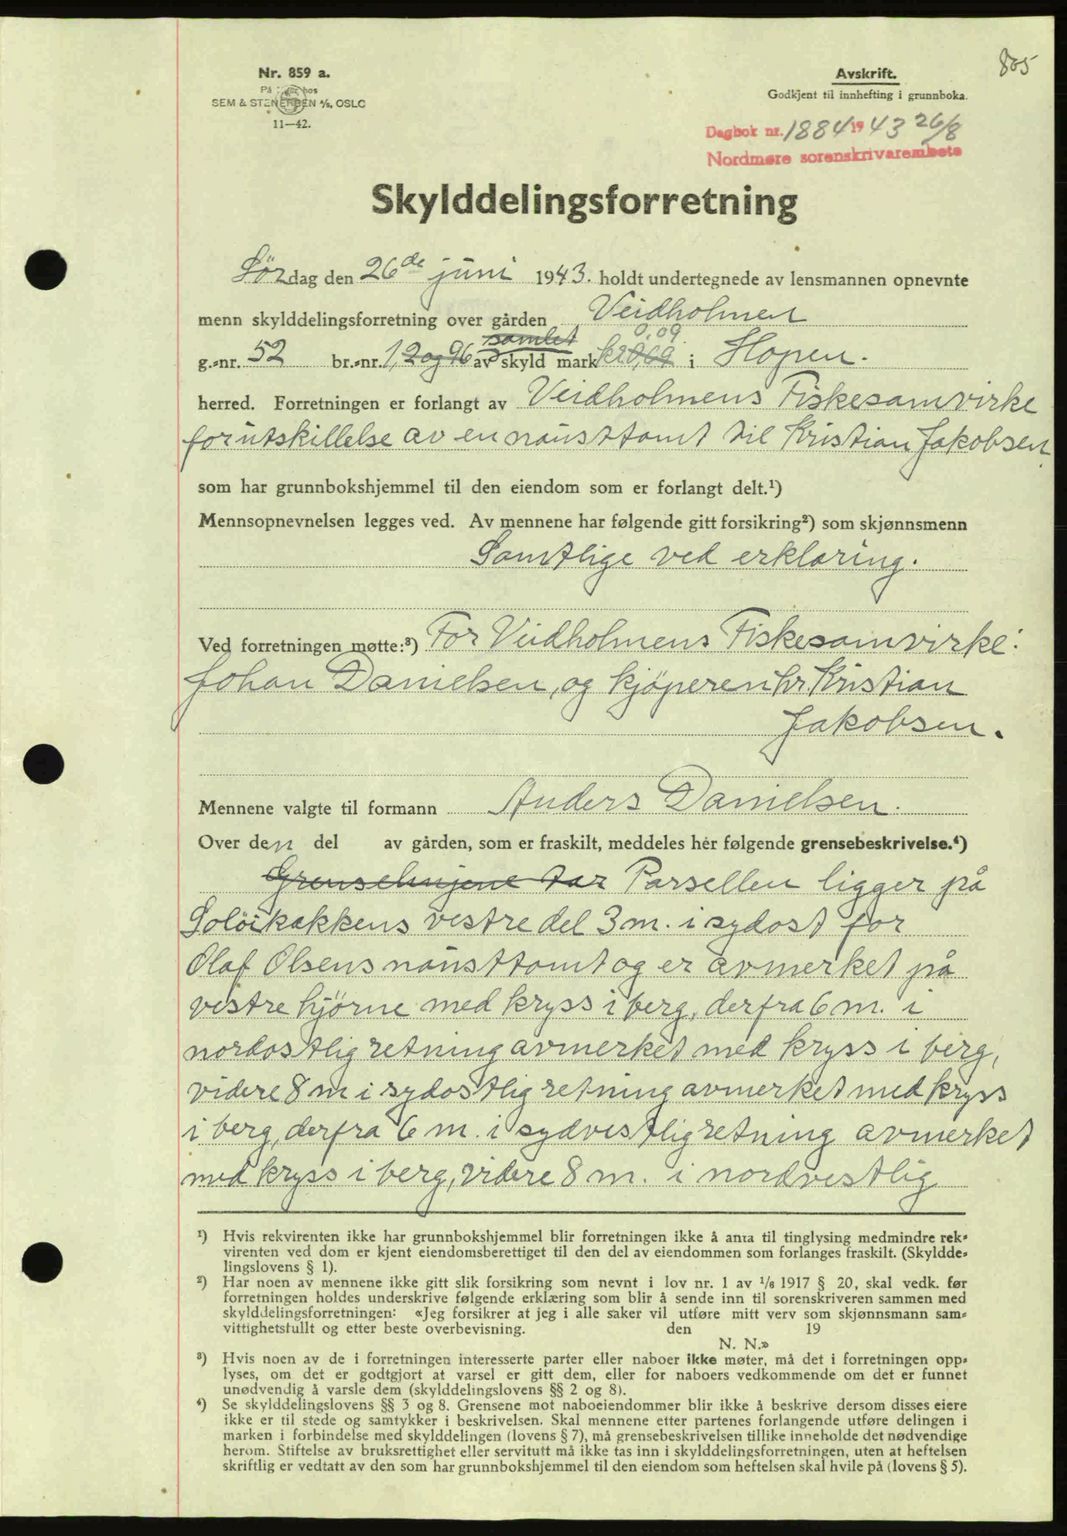 805
Nr. 859 a.
SEM & STENERSEN A/S, OSLO
11—42.
Avskrift.
Godkjent til innhefting i grunnboka.
Dagbok nr. 1884 1943 26/8
Nordmøre sorenskrivarembete
Skylddelingsforretning
Lördag den 26de juni 1943. holdt undertegnede av lensmannen opnevnte
menn skylddelingsforretning over gården Veidholmen
samlet 0,09
g.-nr. 52 br.-nr. 1, 2 og 96 av skyld mark kr 0,69 i Hopen.
herred. Forretningen er forlangt av Veidholmens Fiskesamvirke
for utskillelse av en nausttomt til Kristian Jakobsen,
som har grunnbokshjemmel til den eiendom som er forlangt delt.¹)
Mennsopnevnelsen legges ved. Av mennene har følgende gitt forsikring²) som skjønnsmenn
Samtlige ved erklæring.
Ved forretningen møtte:³) For Veidholmens Fiskesamvirke:
Johan Danielsen, og kjöperen hr. Kristian
Jakobsen.
Mennene valgte til formann Anders Danielsen.
Over den del av gården, som er fraskilt, meddeles her følgende grensebeskrivelse.⁴)
Grenselinjene tar Parsellen ligger på
Solöikakkens vestre del 3 m. i sydost for
Olaf Olsens nausttomt og er avmerket på
vestre hjörne med kryss i berg, derfra 6 m. i
nordostlig retning avmerket med kryss i berg,
videre 8 m i sydostlig retning avmerket med kryss
i berg, derfra 6 m. i sydvestlig retning avmerket
med kryss i berg, videre 8 m. i nordvestlig
¹) Hvis rekvirenten ikke har grunnbokshjemmel blir forretningen ikke å anta til tinglysing medmindre rek-
virenten ved dom er kjent eiendomsberettiget til den del av eiendommen som forlanges fraskilt. (Skyldde-
lingslovens § 1).
²) Har noen av mennene ikke gitt slik forsikring som nevnt i lov nr. 1 av 1/6 1917 § 20, skal vedk. før
forretningen holdes underskrive følgende erklæring som blir å sende inn til sorenskriveren sammen med
skylddelingsforretningen: «Jeg forsikrer at jeg i alle saker vil utføre mitt verv som skjønnsmann sam-
vittighetsfullt og etter beste overbevisning. den 19
N. N.»
³) Hvis noen av de i forretningen interesserte parter eller naboer ikke møter, må det i forretningen opp-
lyses, om det er godtgjort at varsel er gitt dem, eller for naboers vedkommende om det er funnet
unødvendig å varsle dem (skylddelingslovens §§ 2 og 8).
⁴) Se skylddelingslovens §§ 3 og 8. Grensene mot naboeiendommer blir ikke å beskrive dersom disses eiere
ikke er til stede og samtykker i beskrivelsen. Skal mennene etter partenes forlangende utføre delingen i
marken i forbindelse med skylddelingen (lovens § 7), må grensebeskrivelsen tillike inneholde det nødvendige
herom. Stiftelse av bruksrettighet eller servitutt må ikke tas inn i skylddelingsforretningen, uten at heftelsen
skriftlig er vedtatt av den som har grunnbokshjemmel til den eiendom som heftelsen skal hvile på (lovens § 5).